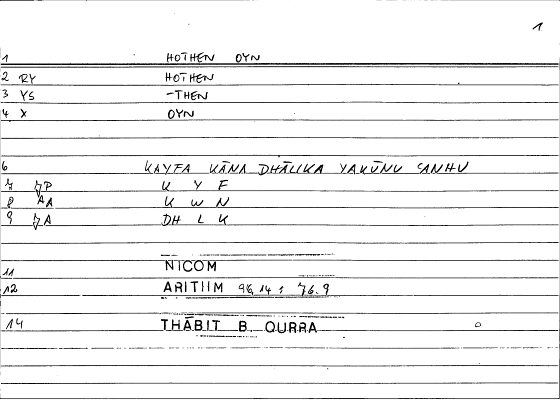 1
1 HOTHEN OYN
2 RY HOTHEN
3 YS -THEN
4 X OYN
6 KAYFA KĀNA DHĀLIKA YAKŪNU
7 K Y F
8 AA K W N
9 DH L K
11 NICOM
12 ARITIIM
14 THĀBIT B. QURRA